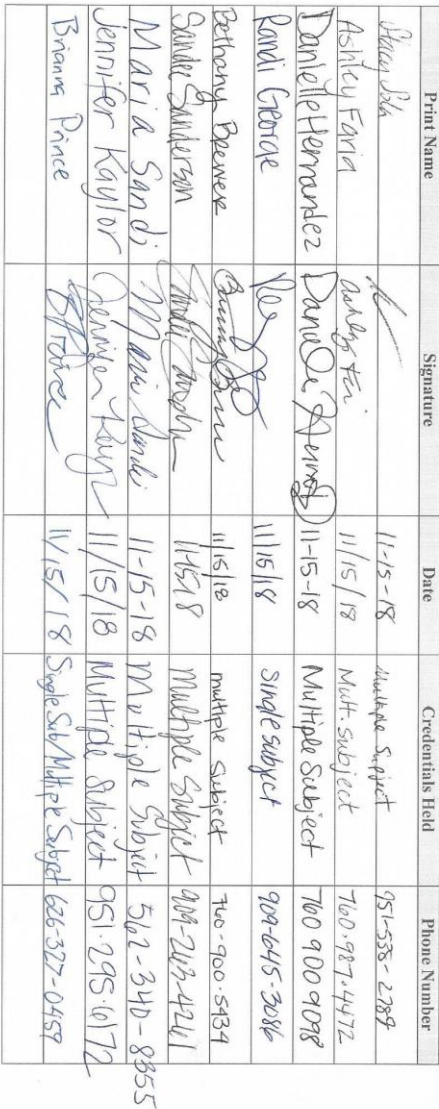 Print Name Signature Date Credentials Held Phone Number
11-15-18 Multiple Subject 951-538-2789
Ashley Farid 11/15/18 Mult. subject 760.987.4472
Danielle Hernandez Danielle 11-15-18 Multiple Subject 760 900 9098
Randi George 11/15/18 Single subject 909-645-3086
Bethany Brewer 11/15/18 multiple Subject 760.900.5434
Sandee Sanderson 111518 Multiple Subject 909-263-4261
Maria Sandi Maria Sandi 11-15-18 Multiple Subject 562-340-8355
Jennifer Kaylor Jennifer Kaylor 11/15/18 Multiple Subject 951.295.6172
Brianna Prince 11/15/18 Single Sub/Multiple Subject 626-327-0459